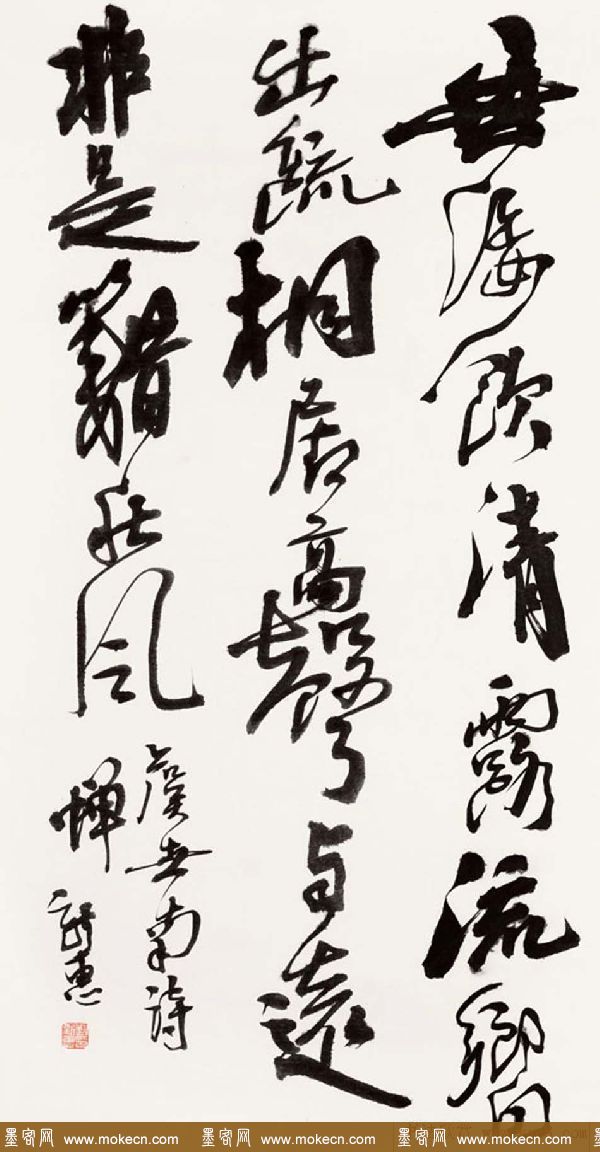 垂緌飲清露流響
出疏桐居高聲自遠
非是籍秋風
虞世南詩
蟬
墨客网 www.mokecn.com 墨客网 www.mokecn.com 墨客网 www.mokecn.com